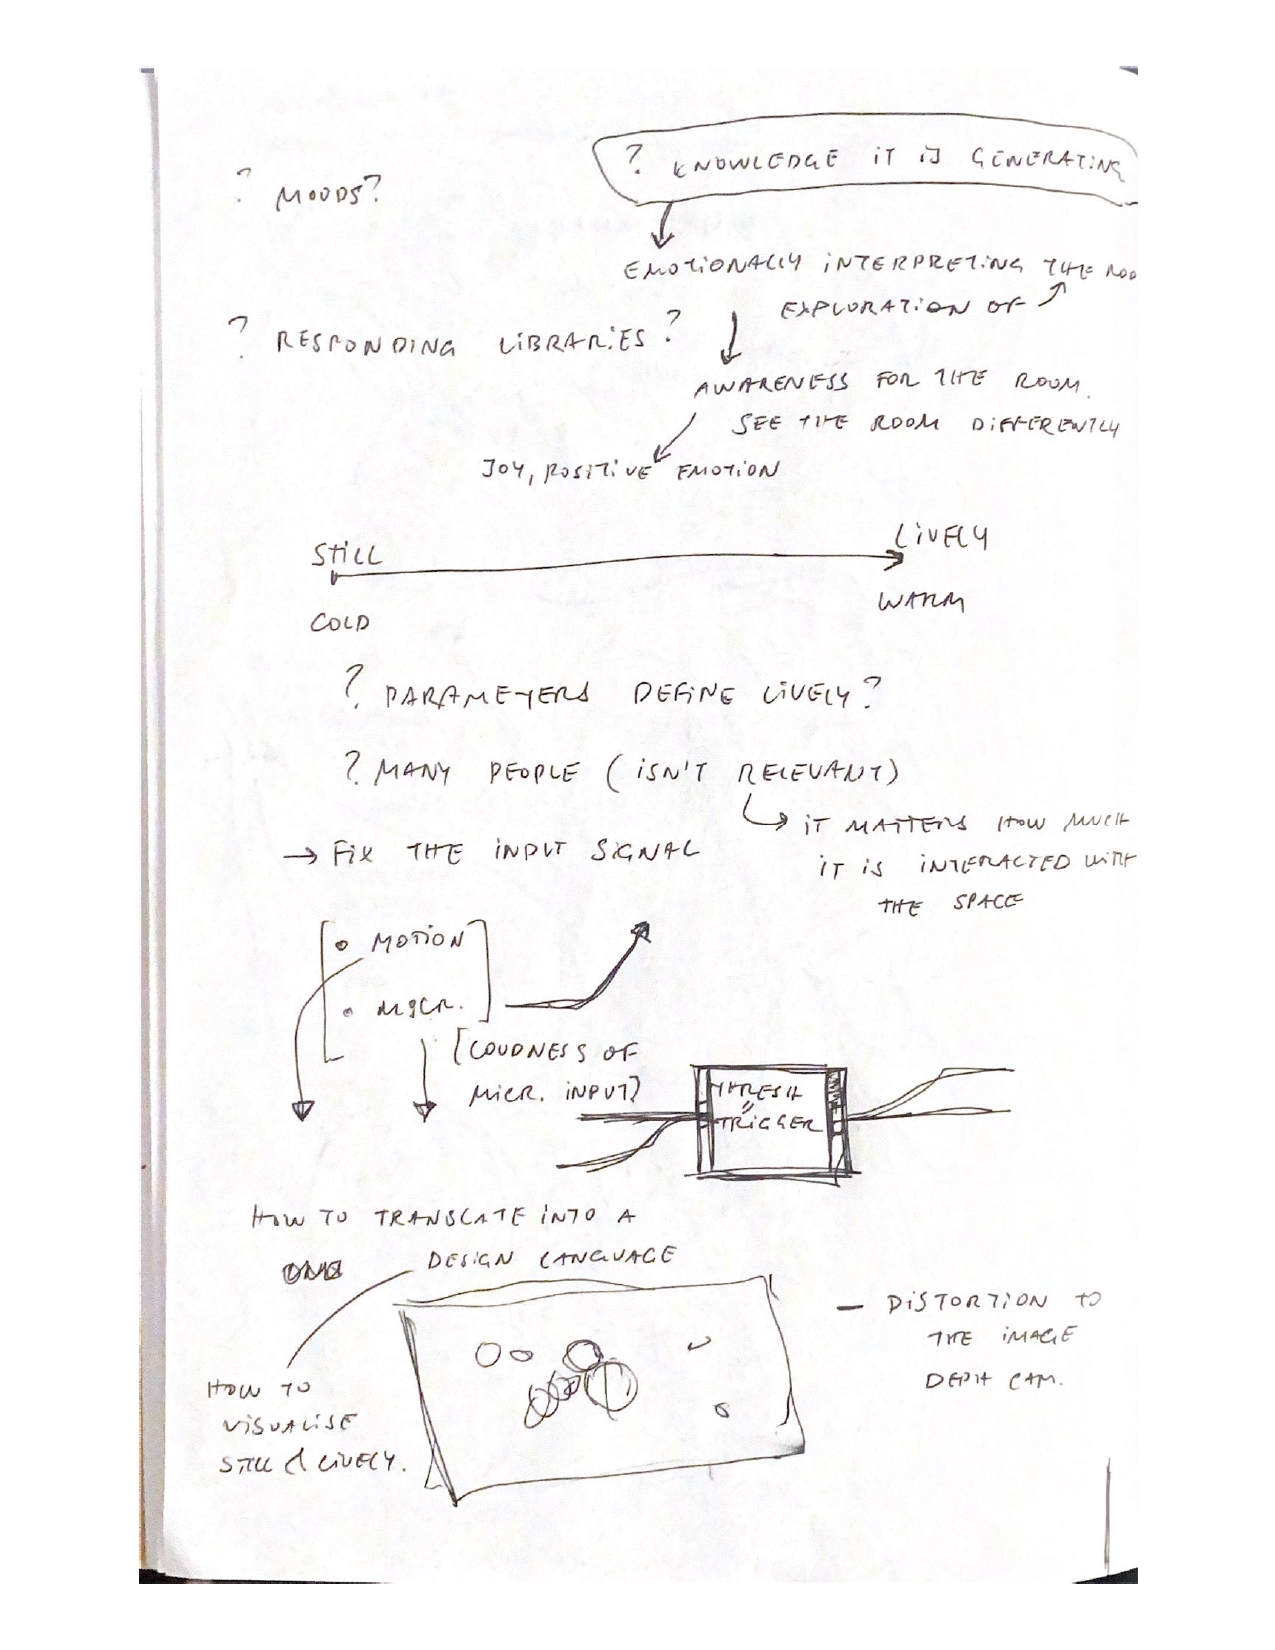 ? KNOWLEDGE IT IS GENERATING
? MOODS?
EMOTIONALLY INTERPRETING THE ROO
EXPLORATION OF
? RESPONDING LIBRARIES?
AWARENESS FOR THE ROOM.
SEE THE ROOM DIFFERENTLY
JOY, POSITIVE EMOTION
STILL
LIVELY
COLD
WARM
? PARAMETERS DEFINE LIVELY?
? MANY PEOPLE (ISN'T RELEVANT)
IT MATTERS HOW MUCH
IT IS INTERACTED WITH
THE SPACE
→ FIX THE INPUT SIGNAL
• MOTION
• MICR.
[LOUDNESS OF
MICR. INPUT]
THRESH
TRIGGER
HOW TO TRANSLATE INTO A
DESIGN LANGUAGE
— DISTORTION TO
THE IMAGE
DEPTH CAM.
HOW TO
VISUALISE
STILL & LIVELY.